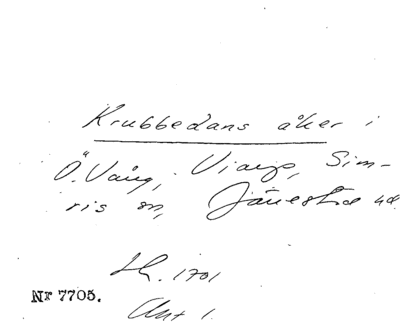 Krubbedans åker i
Ö. Vång, Viarp, Sim-
ris sn, Järrestad hd
LR. 1701
Akt 1.
Nr 7705.